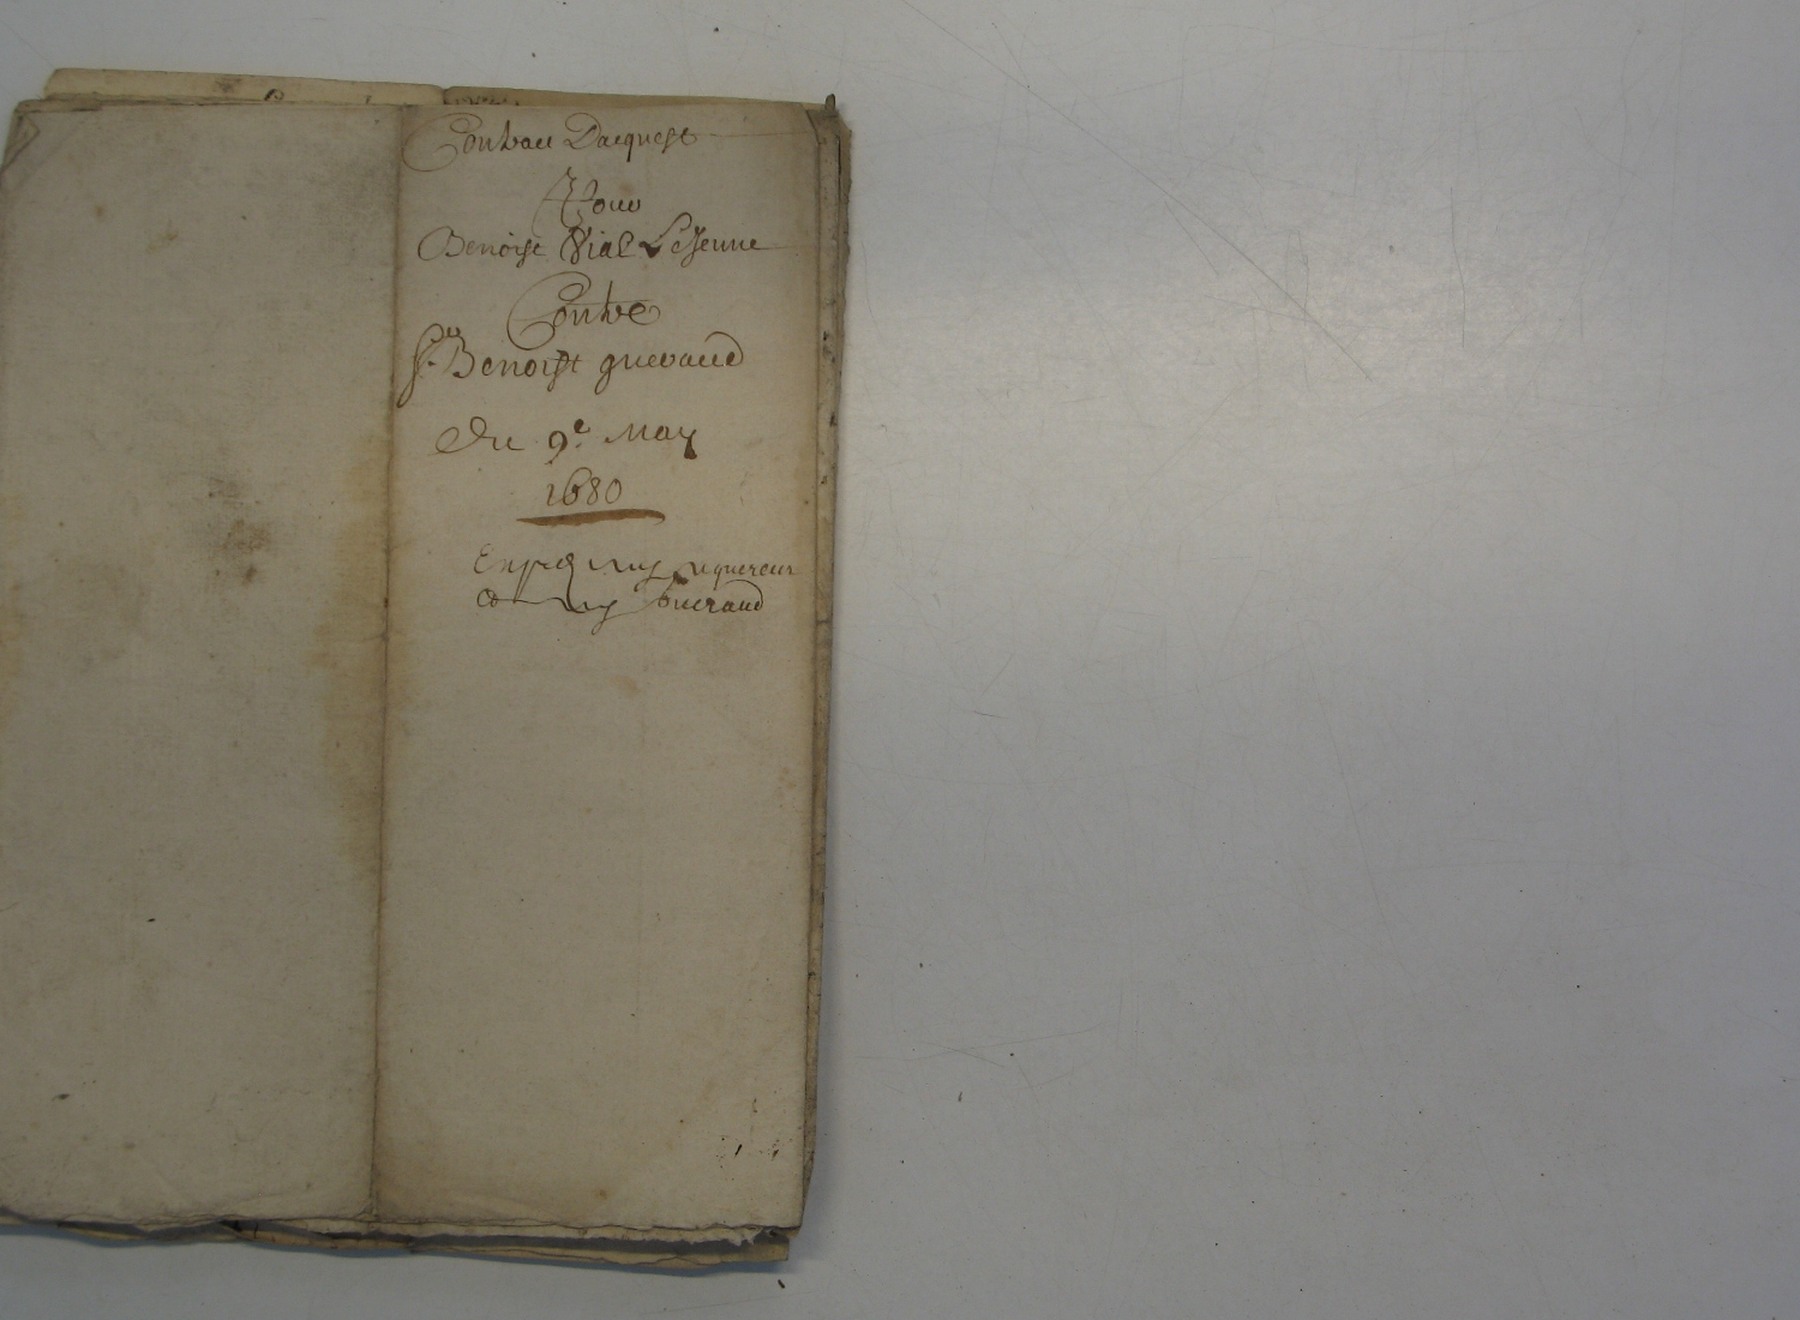 Contract Dacquest
Pour
Benoist Vial Le Jeune
Contre
Sr. Benoist gueraud
Du 9e. May
1680
requereur
Gueraud